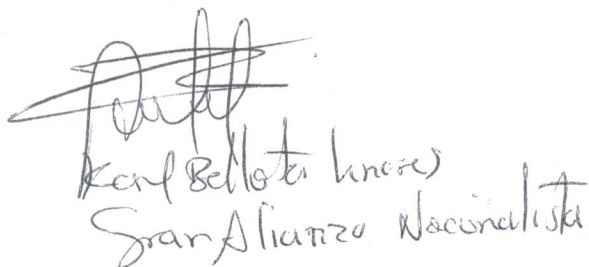 Karl Bellota
Gran Alianza Nacionalista